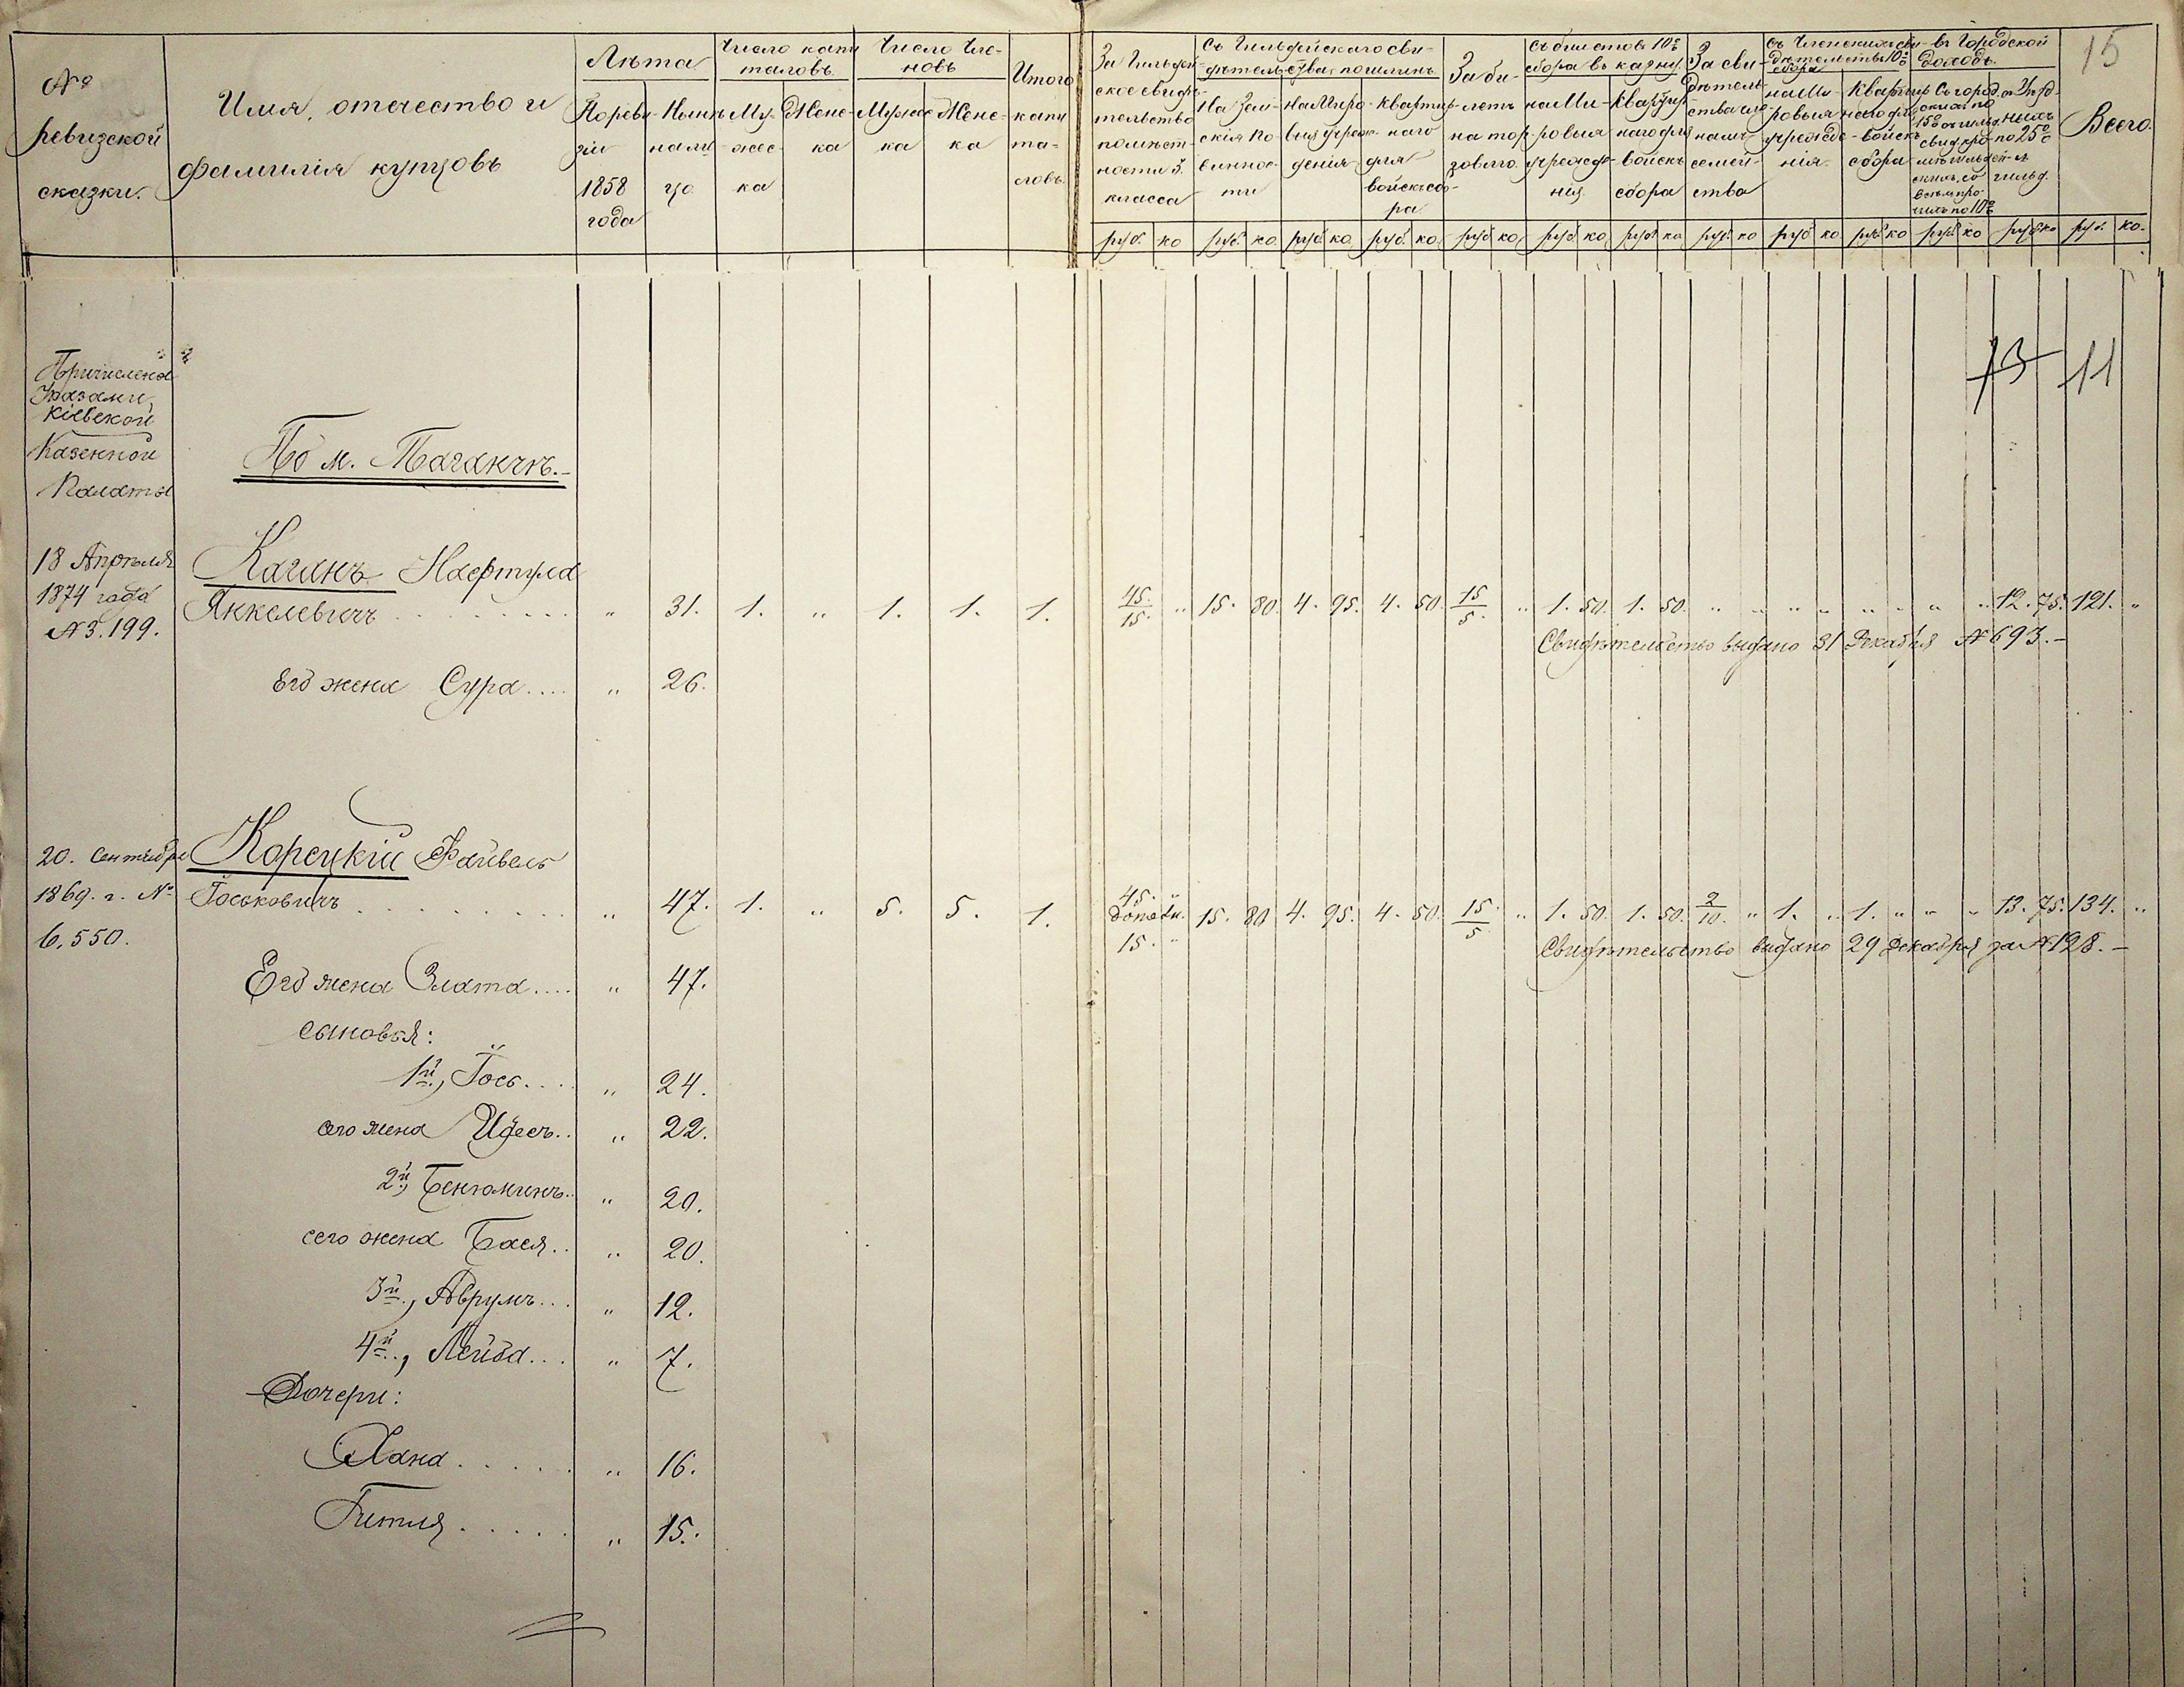 №
ревизской
сказки.
Имя, отечество и
фамилія купцовъ
Лѣта
По реви-
зіи
1858
года
Нынѣ
на ли-
цо
Число капи
таловъ
Му-
жес-
ка
Жене-
ка
Число Чле-
новъ
Мужес
ка
Жене-
ка
Итого
капи
та-
ловъ
За Гильдей-
ское свидѣ-
тельство
помѣст-
ности 3.
класса
Съ Гильдейскаго сви-
дѣтельства, пошлинъ
На Зем-
скія по
виннос-
ти
На Миро-
выя учреж-
денія
Квартир-
наго
для
войскъ сбо-
ра
За би-
летъ
на тор-
говлю
Съ билетовъ 10%
сбора въ казну
на Ми-
ровыя
учрежде-
нія
Квартир
наго для
войскъ
сбора
За сви-
дѣтель
ства чле-
намъ
семей-
ства
Съ Членскихъ сви-
дѣтельствъ 10%
сбора
на Ми-
ровыя
учрежде-
нія
Квартир
наго для
войскъ
сбора
въ Городской
доходъ
15
Всего.
руб. ко руб. ко руб ко руб. ко руб ко руб ко руб ко руб. ко руб ко руб ко руб ко руб ко руб. ко.
Причислена
Указами
Кіевской
Казенной
Палаты
13 11
По м. Таганчѣ.
18 Апрѣля Каганъ Нафтула
1874 года Янкелевичъ " 31. 1. " 1. 1. 1. 45./15. " 15. 80. 4. 95. 4. 50. 15/5. " 1. 50. 1. 50. " " " " " " " " 12. 75. 121. "
№ 3.199.
Свидѣтельство выдано 31 Декабря № 693.
Его жена Сура.... " 26.
20. Сентября Корецкій Файвель
1869. г. № Іоськовичъ " 47. 1. " 5. 5. 1. 45. " 15. " 15. 80 4. 95. 4. 50. 15./5 " 1. 50. 1. 50. 2/10. " 1. " 1. " " " 13. 75. 134. "
6.550.
Свидѣтельство выдано 29 Декабря за № 128.
Его жена Злата.... " 47.
сыновья:
1й, Іось.... " 24.
его жена Идесъ.. " 22.
2й, Беніоминъ.. " 20.
сего жена Бася.. " 20.
3й., Аврумъ... " 12.
4й., Лейба... " 7.
Дочери:
Хана..... " 16.
Гитля..... " 15.